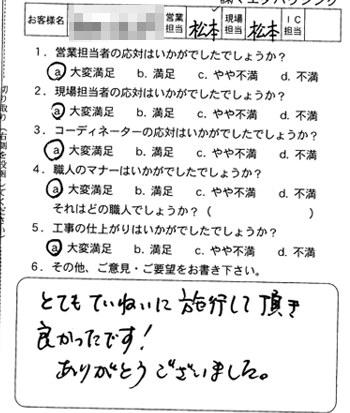 お客様名 営業担当 松本 現場担当 松本 IC担当
1．営業担当者の応対はいかがでしたでしょうか？
a 大変満足 b. 満足 c. やや不満 d. 不満
2．現場担当者の応対はいかがでしたでしょうか？
a 大変満足 b. 満足 c. やや不満 d. 不満
3．コーディネーターの応対はいかがでしたでしょうか？
a 大変満足 b. 満足 c. やや不満 d. 不満
4．職人のマナーはいかがでしたでしょうか？
a 大変満足 b. 満足 c. やや不満 d. 不満
それはどの職人でしょうか？（ ）
5．工事の仕上がりはいかがでしたでしょうか？
a 大変満足 b. 満足 c. やや不満 d. 不満
6．その他、ご意見・ご要望をお書き下さい。
とてもていねいに施行して頂き
良かったです！
ありがとうございました。